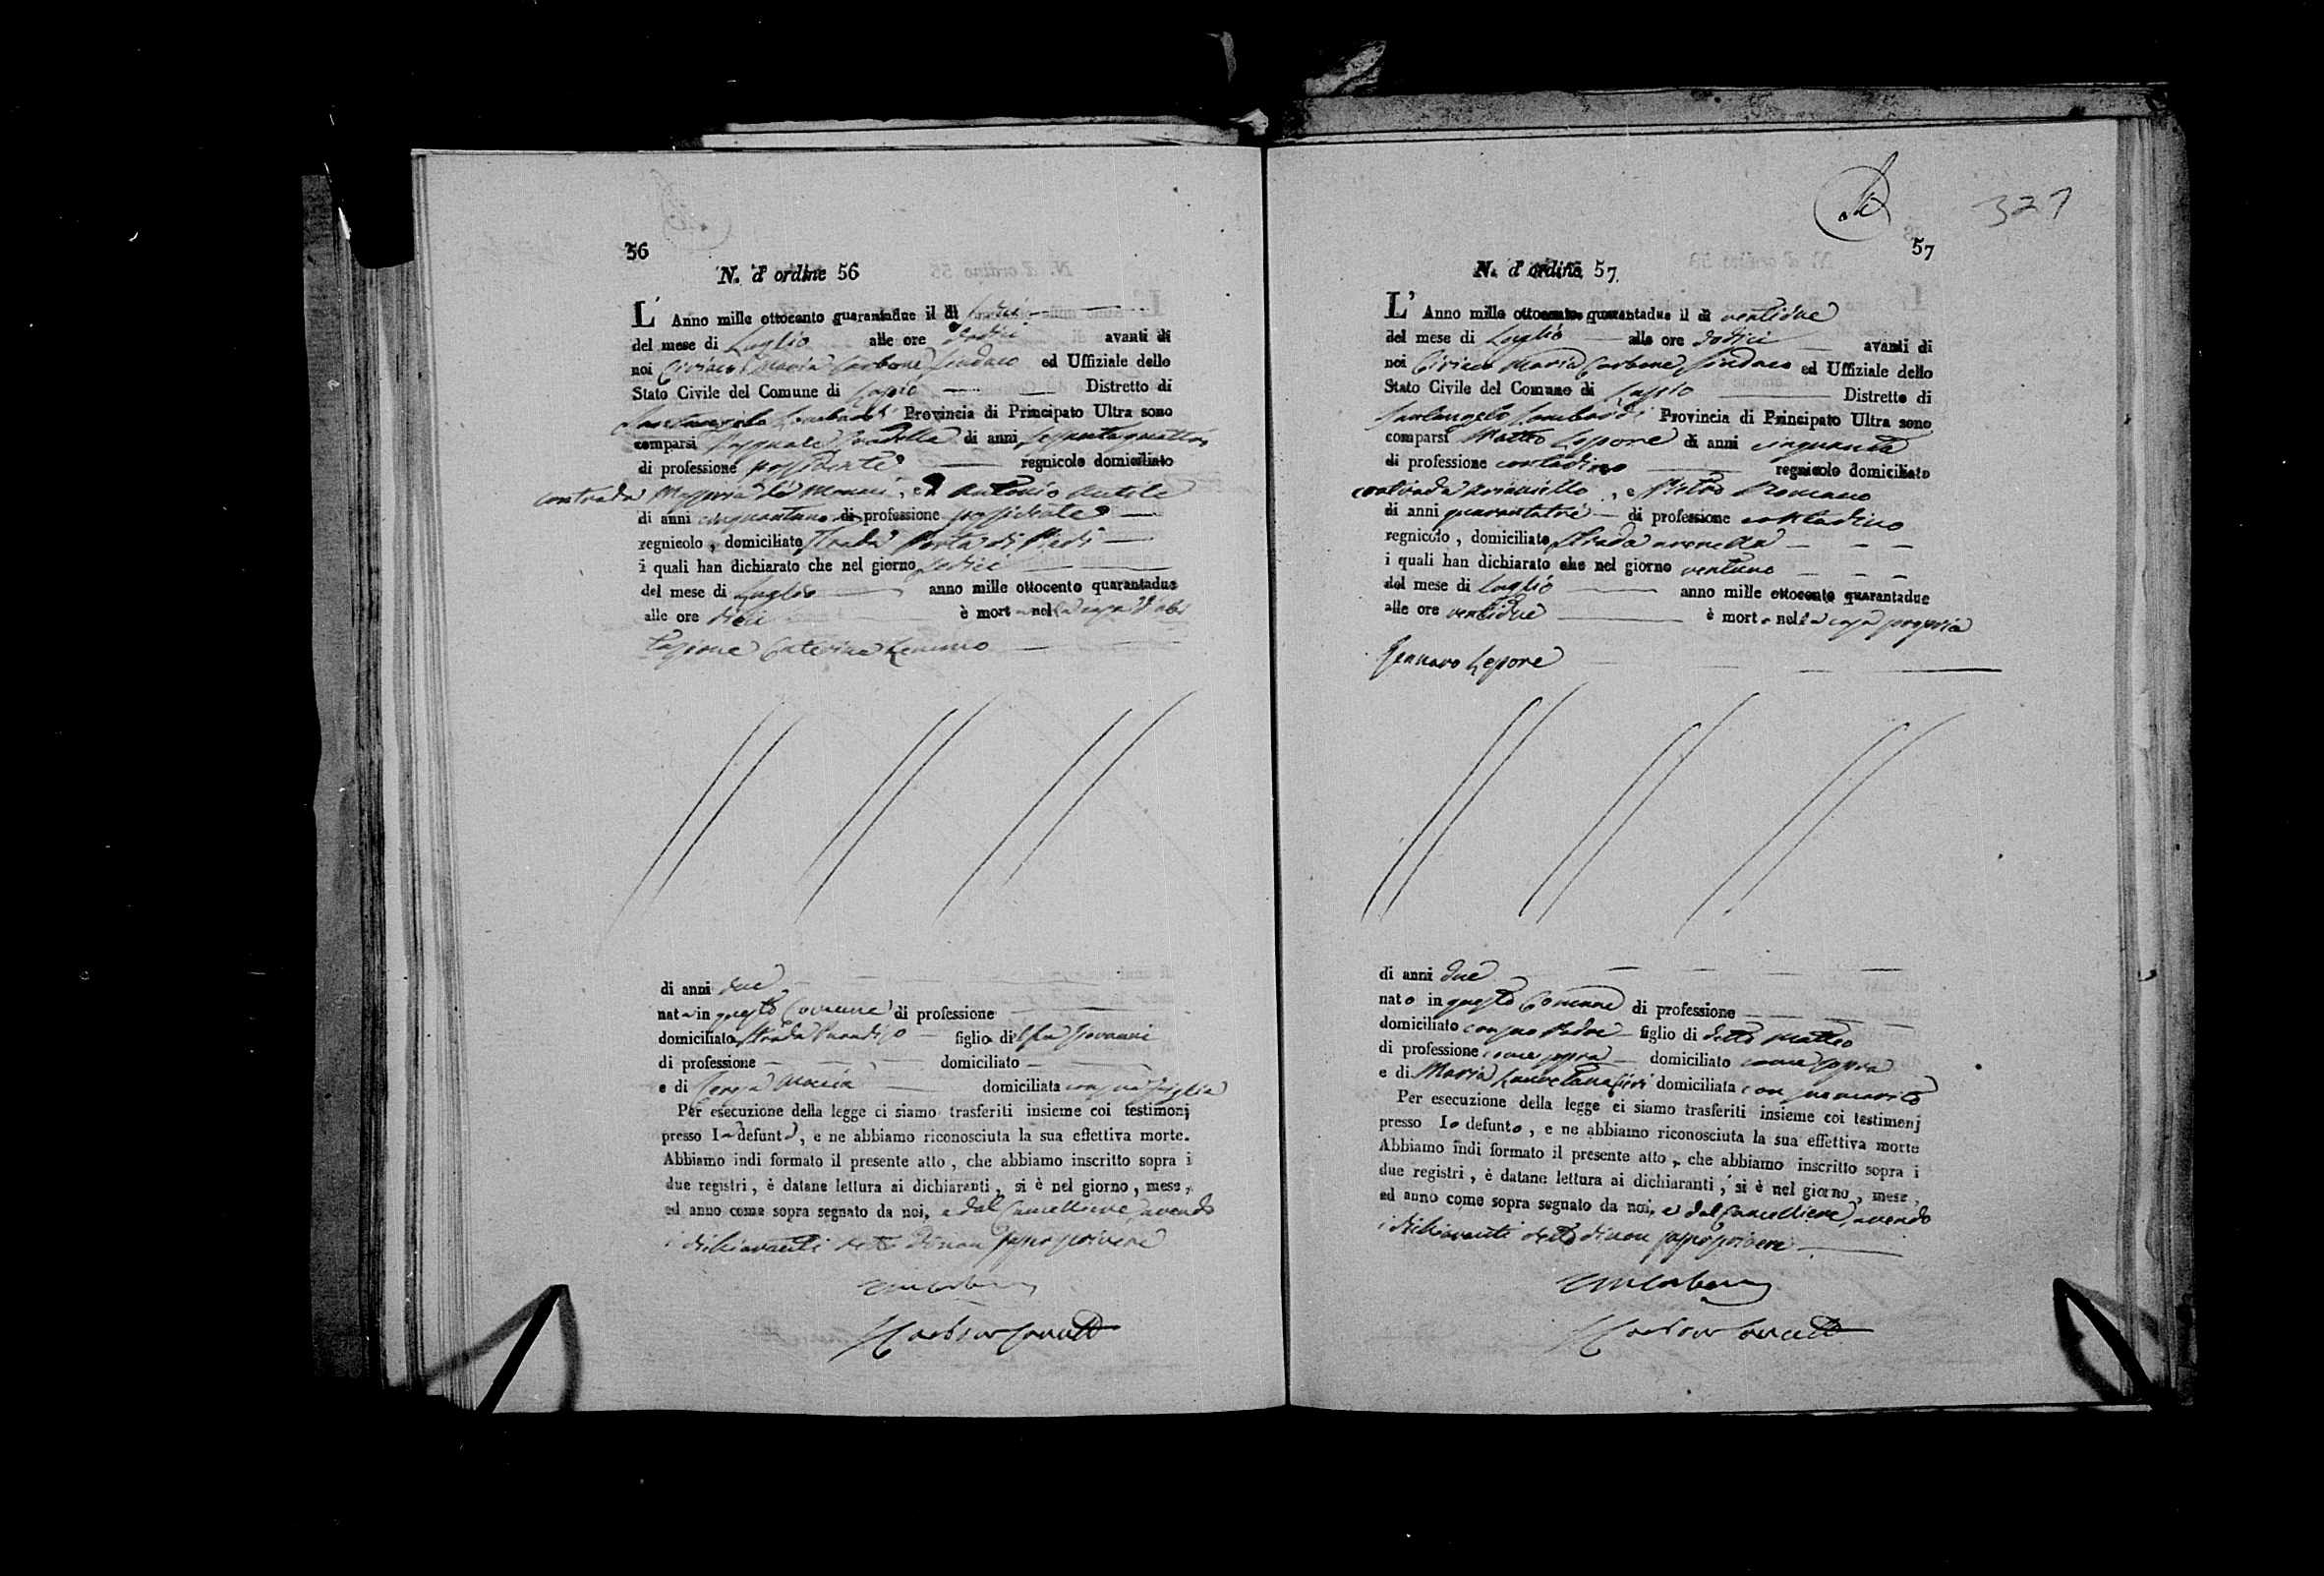 56
N. d' ordine 56
L' Anno mille ottocento quarantadue il di sedici
del mese di Luglio alle ore dodici avanti di
noi Ciriaco Maria Carbone Sindaco ed Uffiziale dello
Stato Civile del Comune di Distretto di
Santangelo Lombardi Provincia di Principato Ultra sono
comparsi Pasquale di anni sessantaquattro
di professione possidente regnicolo domiciliato
contrada , ed Antonio
di anni cinquantuno di professione possidente
regnicolo , domiciliato Strada Porta di Piedi
i quali han dichiarato che nel giorno sedici
del mese di Luglio anno mille ottocento quarantadue
alle ore dieci è morta nella casa d'abi
tazione Caterina
di anni due
nata in questo Comune di professione
domiciliato Strada Paradiso figlia di Giovanni
di professione domiciliato
e di domiciliata con sua figlia
Per esecuzione della legge ci siamo trasferiti insieme coi testimonj
presso la defunta, e ne abbiamo riconosciuta la sua effettiva morte.
Abbiamo indi formato il presente atto , che abbiamo inscritto sopra i
due registri , è datane lettura ai dichiaranti , si è nel giorno , mese ,
ed anno come sopra segnato da noi, e dal Cancelliere, avendo
i dichiaranti detto di non saper scrivere
327
57
N. d' ordine 57
L' Anno mille ottocento quarantadue il di ventidue
del mese di Luglio alle ore dodici avanti di
noi Ciriaco Maria Carbone Sindaco ed Uffiziale dello
Stato Civile del Comune di Distretto di
Santangelo Lombardi Provincia di Principato Ultra sono
comparsi Matteo Lepore di anni cinquanta
di professione contadino regnicolo domiciliato
contrada , e Pietro Romano
di anni quarantatre di professione contadino
regnicolo , domiciliato Strada
i quali han dichiarato che nel giorno ventuno
del mese di Luglio anno mille ottocento quarantadue
alle ore ventidue è morto nella casa propria
Gennaro Lepore
di anni due
nato in questo Comune di professione
domiciliato con suo Padre figlio di detto Matteo
di professione come sopra domiciliato come sopra
e di Maria domiciliata con suo marito
Per esecuzione della legge ci siamo trasferiti insieme coi testimonj
presso lo defunto , e ne abbiamo riconosciuta la sua effettiva morte
Abbiamo indi formato il presente atto , che abbiamo inscritto sopra i
due registri , è datane lettura ai dichiaranti , si è nel giorno , mese ,
ed anno come sopra segnato da noi, e dal Cancelliere, avendo
i dichiaranti detto di non saper scrivere